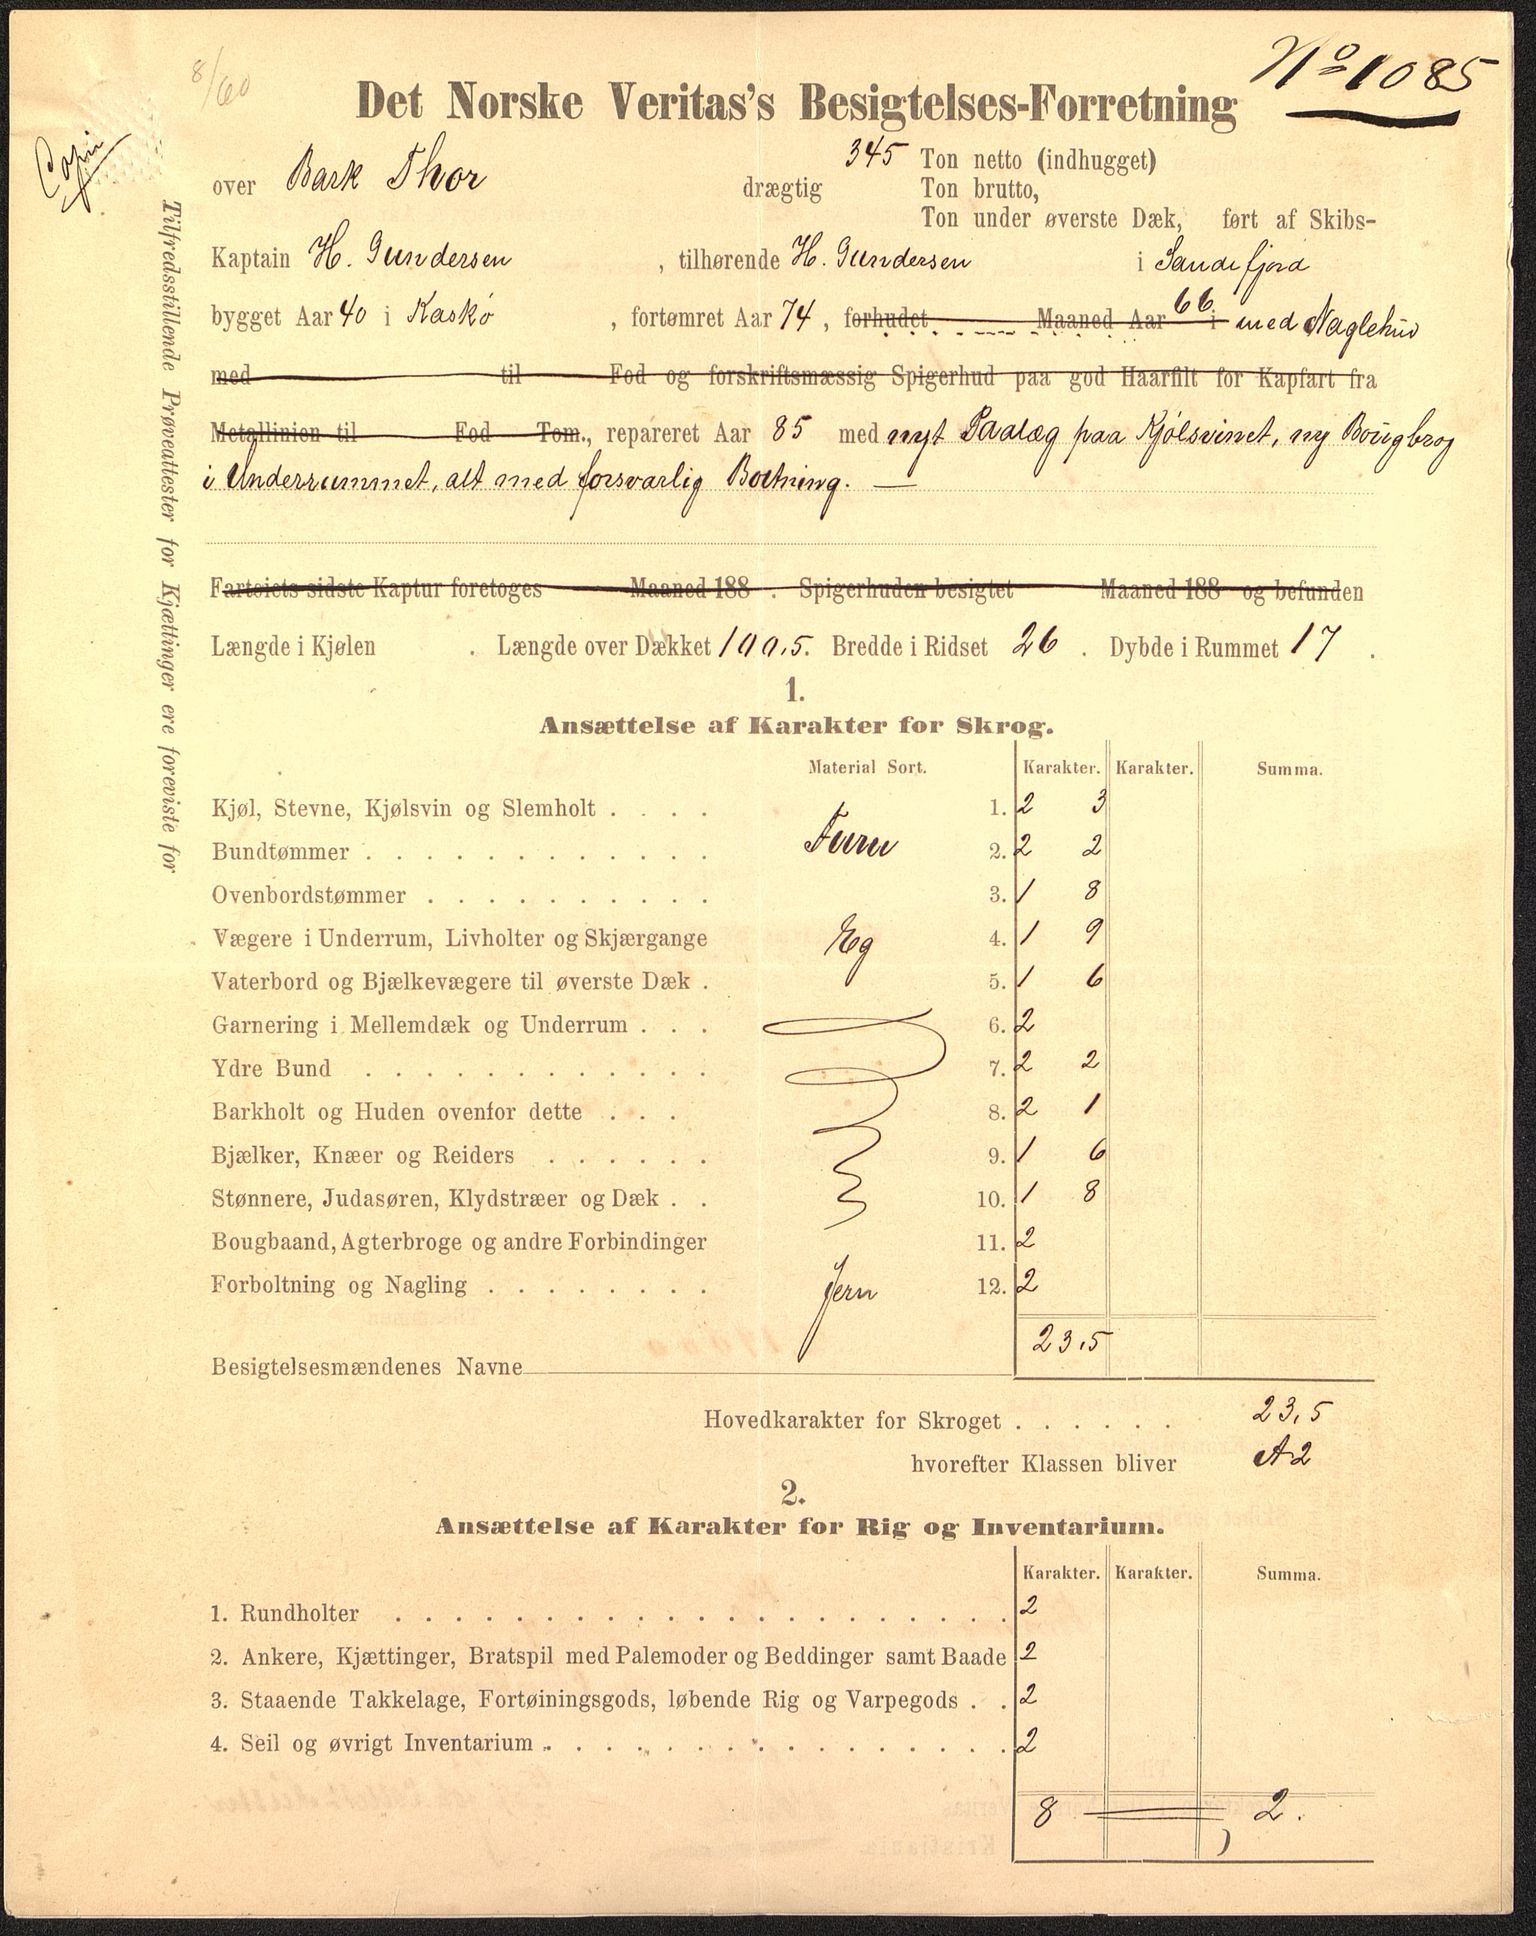 8/60
Nº 1085
Copi
Det Norske Veritas's Besigtelses-Forretning
over Bark Thor drægtig 345 Ton netto (indhugget)
Ton brutto,
Ton under øverste Dæk, ført af Skibs-
Kaptain H. Gundersen, tilhørende H. Gundersen i Sandefjord
bygget Aar 40 i Kaskø, fortømret Aar 74, forhudet Maaned Aar 66 i med Naglehud
med til Fod og forskriftsmæssig Spigerhud paa god Haarfilt for Kapfart fra
Metallinien til Fod Tom., repareret Aar 85 med nyt Paalæg paa Kjølsvinet, ny Bougbrog
i Underrummet, alt med forsvarlig Boltning. —
Fartøiets sidste Kaptur foretoges Maaned 188 . Spigerhuden besigtet Maaned 188 og befunden
Længde i Kjølen . Længde over Dækket 100,5. Bredde i Ridset 26 . Dybde i Rummet 17 .
Tilfredsstillende Prøveattester for Kjættinger ere foreviste for
1.
Ansættelse af Karakter for Skrog.
Material Sort. Karakter. Karakter. Summa.
Kjøl, Stevne, Kjølsvin og Slemholt . . . . 1. 2 3
Bundtømmer . . . . . . . . . . . . Furu 2. 2 2
Ovenbordstømmer . . . . . . . . . . 3. 1 8
Vægere i Underrum, Livholter og Skjærgange Eg 4. 1 9
Vaterbord og Bjælkevægere til øverste Dæk . 5. 1 6
Garnering i Mellemdæk og Underrum . . . 6. 2
Ydre Bund . . . . . . . . . . . . 7. 2 2
Barkholt og Huden ovenfor dette . . . 8. 2 1
Bjælker, Knæer og Reiders . . . . . . 9. 1 6
Stønnere, Judasøren, Klydstræer og Dæk . . 10. 1 8
Bougbaand, Agterbroge og andre Forbindinger 11. 2
Forboltning og Nagling . . . . . . . . Jern 12. 2
23,5
Besigtelsesmændenes Navne
Hovedkarakter for Skroget . . . . . . 23,5
hvorefter Klassen bliver A2
2.
Ansættelse af Karakter for Rig og Inventarium.
Karakter. Karakter. Summa.
1. Rundholter . . . . . . . . . . . . . . . . . . . . 2
2. Ankere, Kjættinger, Bratspil med Palemoder og Beddinger samt Baade 2
3. Staaende Takkelage, Fortøiningsgods, løbende Rig og Varpegods . . 2
4. Seil og øvrigt Inventarium . . . . . . . . . . . . . . . 2
8 2.